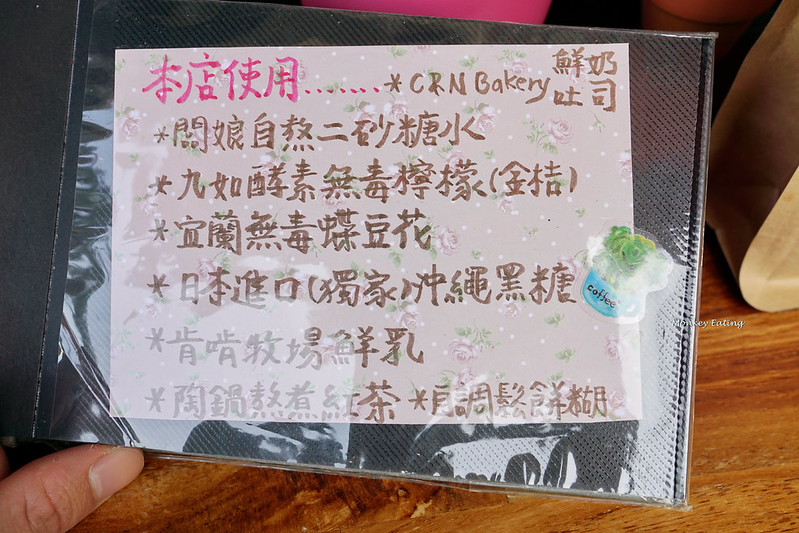 本店使用........*CRN Bakery 鮮奶吐司
*闆娘自熬二砂糖水
*九如酵素無毒檸檬(金桔)
*宜蘭無毒蝶豆花
*日本進口(獨家)沖繩黑糖
*肯啃牧場鮮乳
*陶鍋熬煮紅茶 *自調鬆餅糊
coffee
Monkey Eating